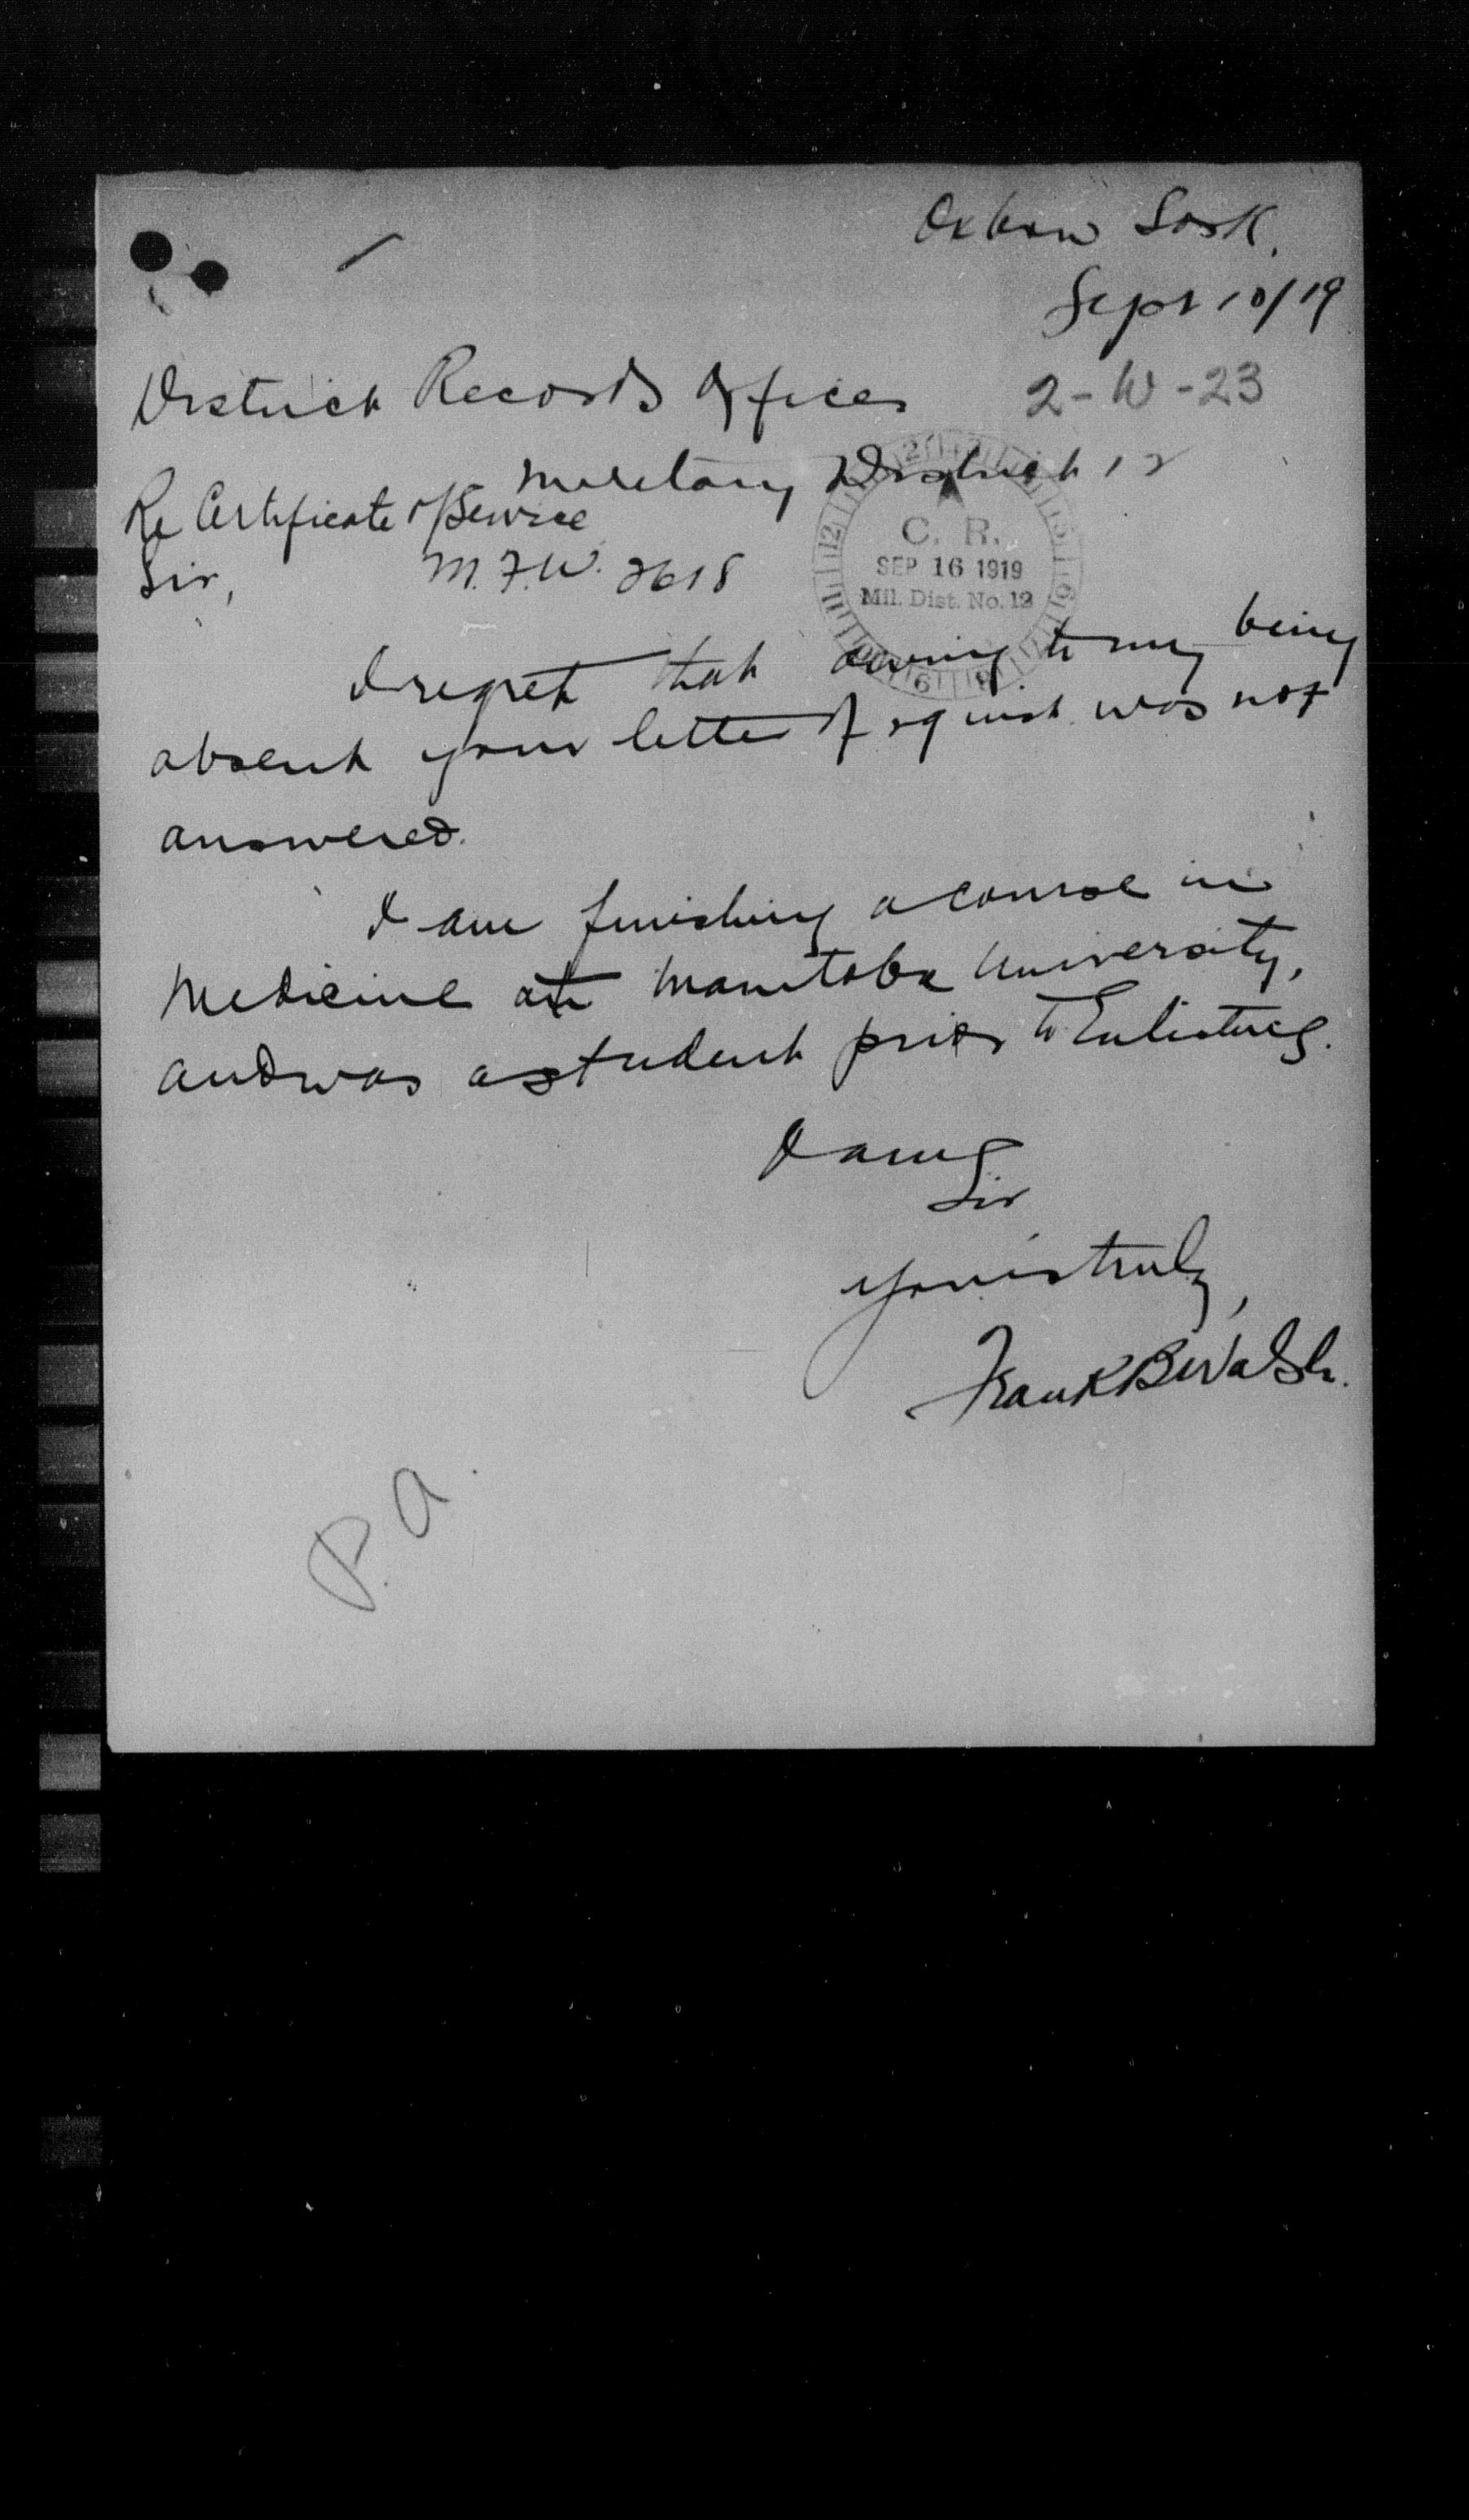 Oxbow Sask.
Sept 10/19
District Records Officer
2-W-23
Military District 12
Re Certificate of Service
Sir, M.F.W. 2618
C. R.
SEP 16 1919
Mil. Dist. No. 12
I regret that owing to my being
absent your letter of inst. was not
answered.
I am finishing a course in
Medicine at Manitoba University,
and was a student prior to Enlisting.
I am
Sir
yours truly,
Frank B Walsh.
P.A.